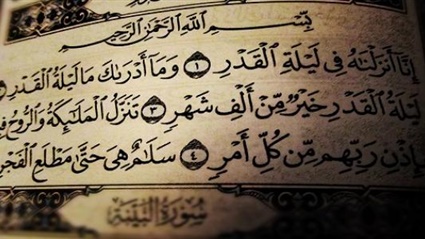 بِسْمِ اللَّهِ الرَّحْمَٰنِ الرَّحِيمِ
إِنَّا أَنزَلْنَاهُ فِي لَيْلَةِ الْقَدْرِ ١ وَمَا أَدْرَاكَ مَا لَيْلَةُ الْقَدْرِ
لَيْلَةُ الْقَدْرِ خَيْرٌ مِّنْ أَلْفِ شَهْرٍ ٣ تَنَزَّلُ الْمَلَائِكَةُ وَالرُّوحُ
بِإِذْنِ رَبِّهِم مِّن كُلِّ أَمْرٍ ٤ سَلَامٌ هِيَ حَتَّىٰ مَطْلَعِ الْفَجْرِ
سُورَةُ الْبَيِّنَةِ